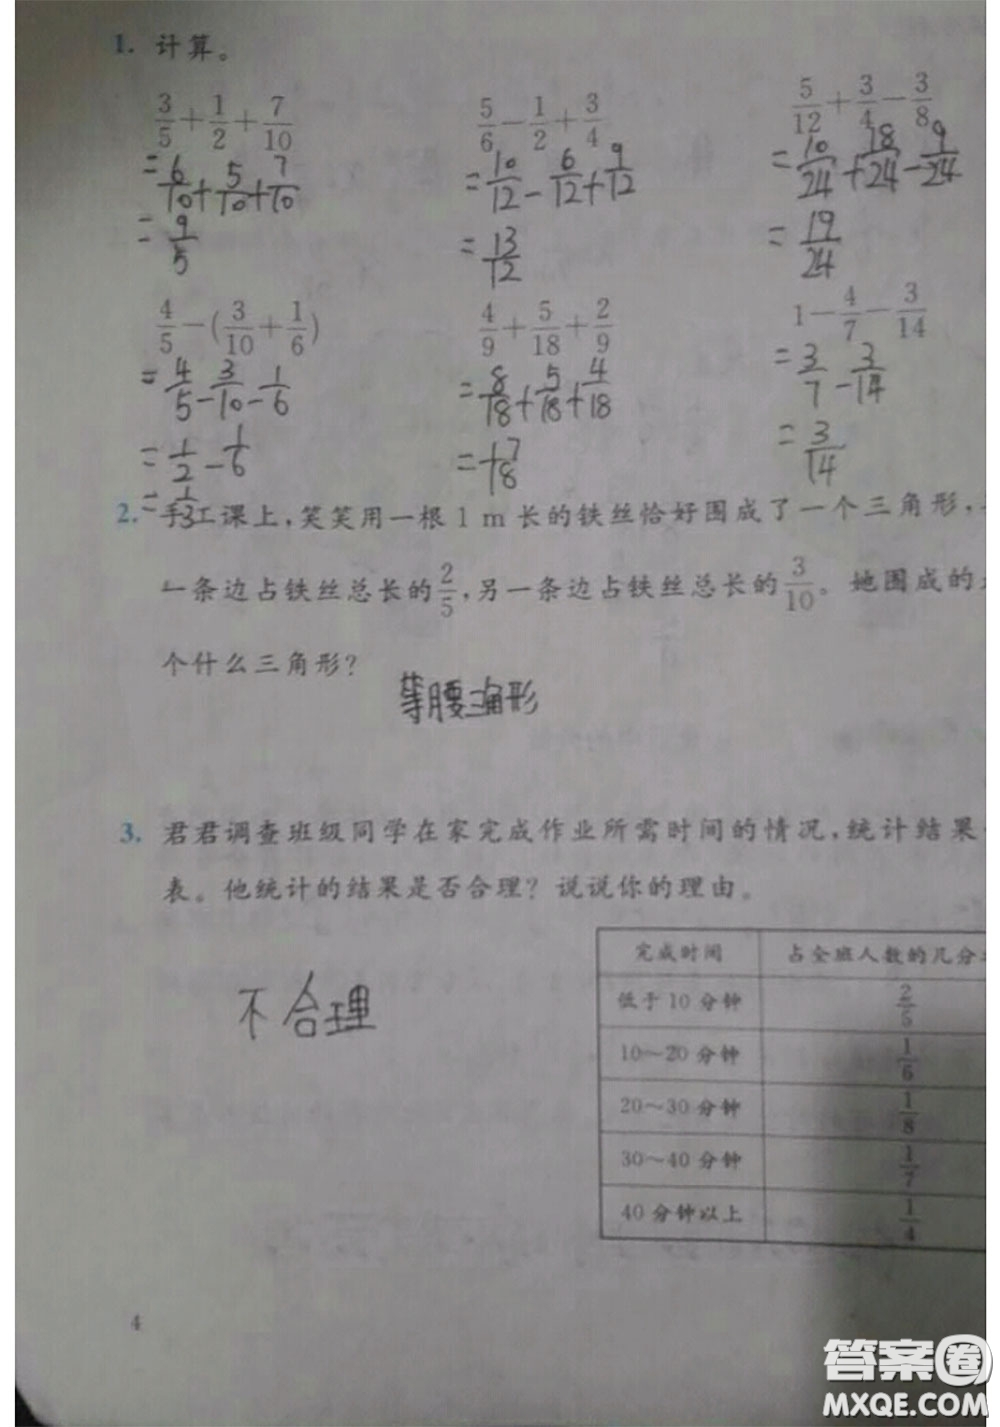 1. 计算。
3/5+1/2+7/10 5/6-1/2+3/4 5/12+3/4-3/8
=6/10+5/10+7/10 =10/12-6/12+9/12 =10/24+18/24-9/24
=9/5 =13/12 =19/24
4/5-(3/10+1/6) 4/9+5/18+2/9 1-4/7-3/14
=4/5-3/10-1/6 =8/18+5/18+4/18 =3/7-3/14
=1/2-1/6 =17/18 =3/14
=1/3
2. 手工课上,笑笑用一根1m长的铁丝恰好围成了一个三角形,
一条边占铁丝总长的2/5,另一条边占铁丝总长的3/10。她围成的
个什么三角形?
等腰三角形
3. 君君调查班级同学在家完成作业所需时间的情况,统计结果
表。他统计的结果是否合理? 说说你的理由。
不合理
完成时间 占全班人数的几分
低于10分钟 2/5
10~20分钟 1/6
20~30分钟 1/8
30~40分钟 1/7
40分钟以上 1/4
4
答案圈
MXQE.COM